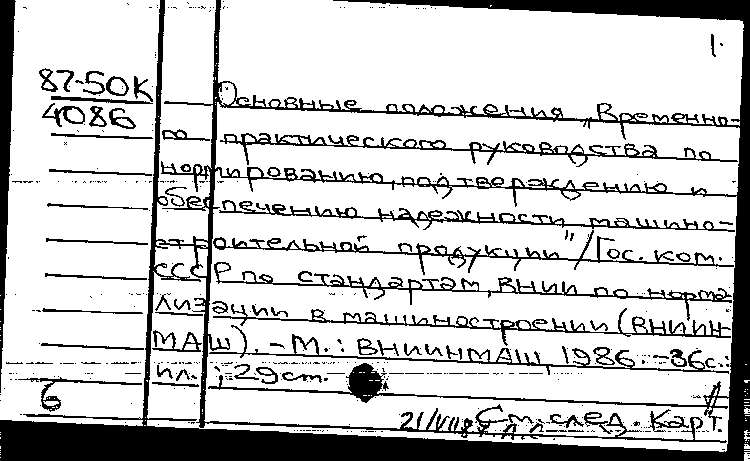 1.
87-50К
4086
Основные положения „Временно-
го практического руководства по
нормированию, подтверждению и
обеспечению надежности машино-
строительной продукции"/Гос. ком.
СССР по стандартам, ВНИИ по норма
лизации в машиностроении (ВНИИН-
МАШ). – М.: ВНИИНМАШ, 1986. – 36с.:
ил.; 29 см.
6
См. след. карт.